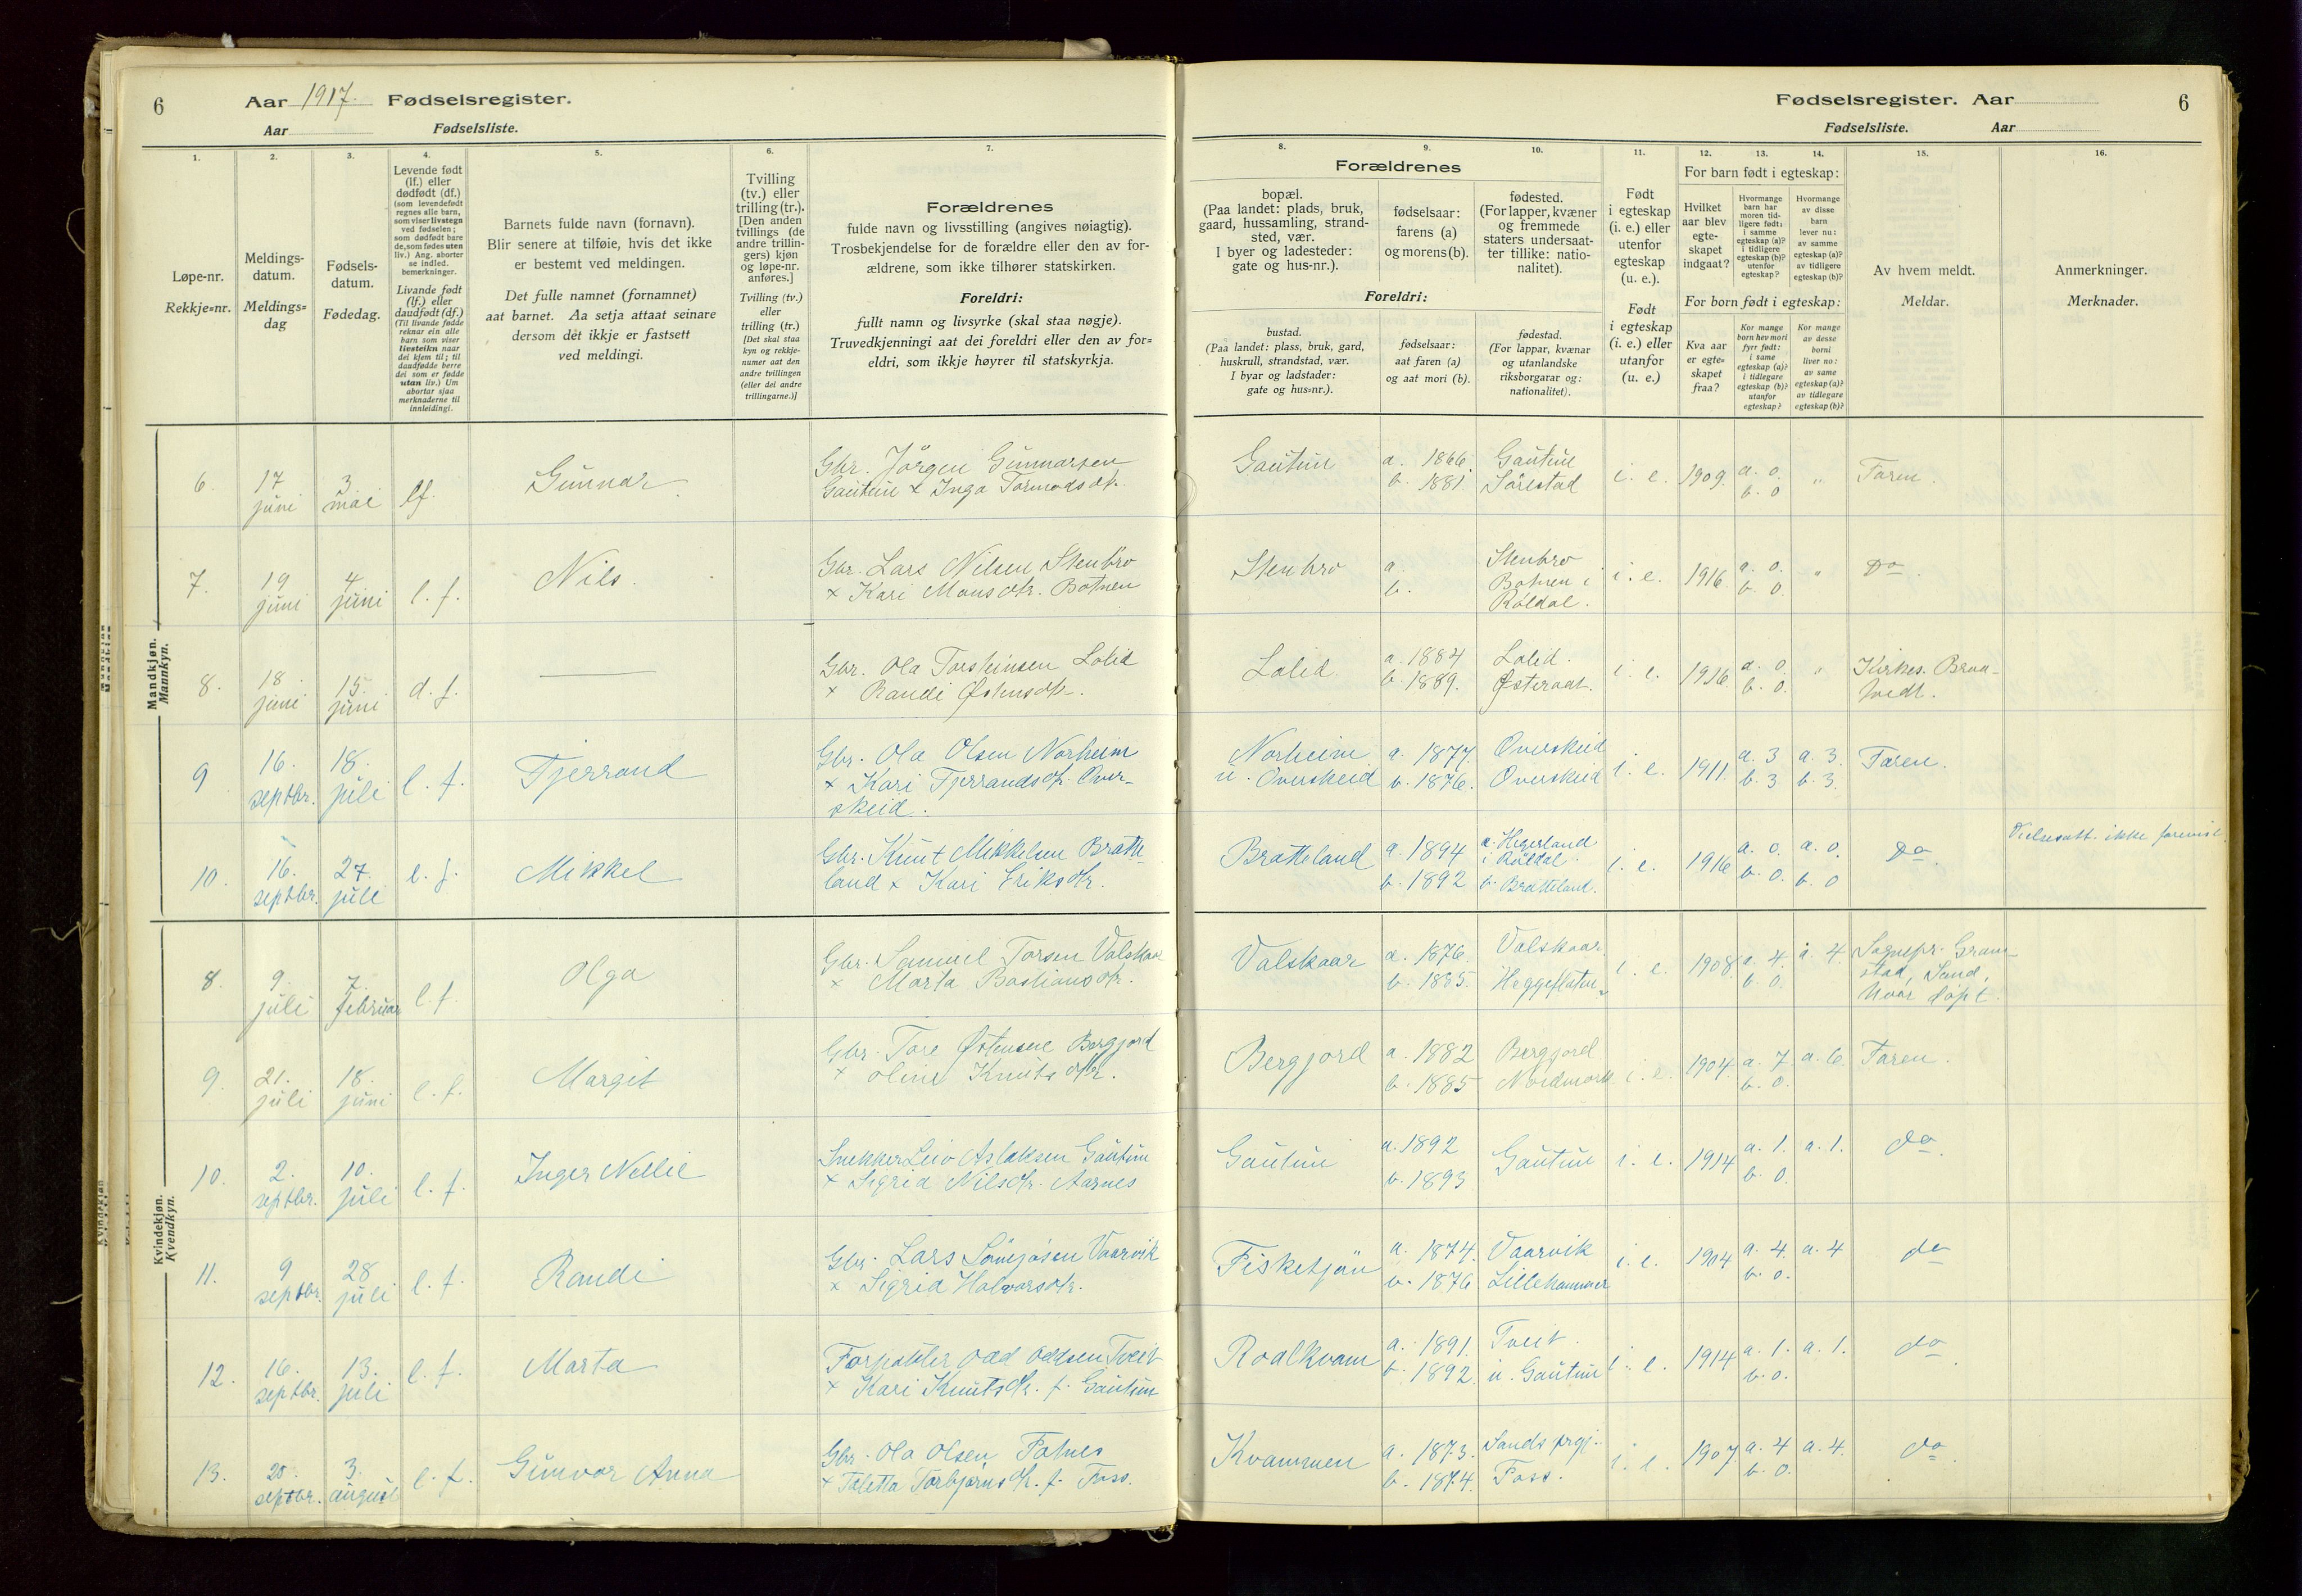 6 Aar 1917. Fødselsregister.
Aar Fødselsliste.
Fødselsregister. Aar 6
Fødselsliste. Aar
1. 2. 3. 4. 5. 6. 7. 8. 9. 10. 11. 12. 13. 14. 15. 16.
Løpe-nr.
Rekkje=nr.
Meldings-
datum.
Meldings=
dag
Fødsels-
datum.
Fødedag.
Levende født
(lf.) eller
dødfødt (df.)
(som levendefødt
regnes alle barn,
som viser livstegn
ved fødselen;
som dødfødt bare
de, som fødes uten
liv.) Ang. aborter
se indled.
bemerkninger.
Livande født
(lf.) eller
daudfødt (df.)
(Til livande fødde
reknar ein alle
barn som viser
livsteikn naar
dei kjem til; til
daudfødde berre
dei som er fødde
utan liv.) Um
abortar sjaa
merknaderne til
innleidingi.
Barnets fulde navn (fornavn).
Blir senere at tilføie, hvis det ikke
er bestemt ved meldingen.
Det fulle namnet (fornamnet)
aat barnet. Aa setja attaat seinare
dersom det ikkje er fastsett
ved meldingi.
Tvilling
(tv.) eller
trilling (tr.).
[Den anden
tvillings (de
andre trillin-
gers) kjøn
og løpe-nr.
anføres.]
Tvilling (tv.)
eller
trilling (tr.)
[Det skal staa
kyn og rekkje-
numer aat den
andre tvillingen
(eller dei andre
trillingarne.)]
Forældrenes
fulde navn og livsstilling (angives nøiagtig).
Trosbekjendelse for de forældre eller den av for-
ældrene, som ikke tilhører statskirken.
Foreldri:
fullt namn og livsyrke (skal staa nøgje).
Truvedkjenningi aat dei foreldri eller den av for=
eldri, som ikkje høyrer til statskyrkja.
Forældrenes
bopæl.
(Paa landet: plads, bruk,
gaard, hussamling, strand-
sted, vær.
I byer og ladesteder:
gate og hus-nr.).
fødselsaar:
farens (a)
og morens (b).
fødested.
(For lapper, kvæner
og fremmede
staters undersaat-
ter tillike: natio-
nalitet).
Foreldri:
bustad.
(Paa landet: plass, bruk, gard,
huskrull, strandstad, vær.
I byar og ladstader:
gate og hus=nr.).
fødselsaar:
aat faren (a)
og aat mori (b).
fødestad.
(For lappar, kvænar
og utanlandske
riksborgarar og:
nationalitet).
Født
i egteskap
(i. e.) eller
utenfor
egteskap
(u. e.).
Født
i egteskap
(i. e.) eller
utanfor
(u. e.)
For barn født i egteskap:
Hvilket
aar blev
egte-
skapet
indgaat?
Hvormange
barn har
moren tid-
ligere født:
i samme
egteskap (a)?
i tidligere
egteskap (b)?
utenfor
egteskap?
Hvormange
av disse
barn
lever nu:
av samme
egteskap (a)?
av tidligere
egteskap (b)?
For born født i egteskap:
Kva aar
er egte=
skapet
fraa?
Kor mange
born hev mori
fyrr født:
i same
egteskap (a)?
i tidlegare
egteskap (b)?
utanfor
egteskap?
Kor mange
av desse
borni
liver no:
av same
egteskap (a)?
av tidlegare
egteskap (b)?
Av hvem meldt.
Meldar.
Anmerkninger.
Merknader.
Mandkjøn.
Mannkyn.
6. 17 juni 3 mai lf. Gunnar Gbr. Jörgen Gunnarsen
Gautun x Inga Tormodsdtr. Gautun a. 1866. b. 1881. Gautun Sörestad i. e. 1909. a. 0. b. 0 " Faren.
7. 19 juni 4 juni l. f. Nils. Gbr. Lars Nilsen Stenbro
x Kari Monsdtr. Botnen Stenbro a. b. Stenbro Botnen i Röldal. i. e. 1916 a. 0. b. 0. " Do.
8. 18. juni 15. juni d. f. — Gbr. Ola Torsteinsen Lolid
x Randi Østensdtr. Lolid. a. 1884 b. 1889. Lolid. Østeraat. i. e. 1916 a. 0. b. 0. " Kirkes. Braa-
tvedt.
9 16. septbr. 18. juli l. f. Tjerrand Gbr. Ola Olsen Norheim
x Kari Tjerrandsdtr. Over-
skeid. Norheim u. Overskeid a. 1877. b. 1876. Overskeid Overskeid i. e. 1911. a. 3 b. 3 a. 3. b. 3. Faren.
10. 16. septbr. 27. juli l. f. Mikkel Gbr. Knut Mikkelsen Bratte
land x Kari Eriksdtr. Bratteland a. 1894 b. 1892 a. Hegerland i Röldal. b. Bratteland. i. e. 1916 a. 0. b. 0. a. 0. b. 0 Do. Vielsesatt. ikke forevist.
Kvindekjøn.
Kvendkyn.
8. 9. juli 7. februar l. f. Olga Gbr. Samuel Torsen Valskaar
x Marta Bastiansdtr. Valskaar a. 1876. b. 1885. Valskaar. Heggeflaten i. e. 1908. a. 4. b. 0. a. 4. Sognepr. Gram-
stad, Sand,
hvor döpt.
9. 21. juli 18. juni l. f. Margit Gbr. Tore Østensen Bergjord
x Oline Knutsdtr. Bergjord a. 1882 b. 1885 Bergjord Nordmork i. e. 1904. a. 7. b. 0. a. 6. Faren.
10. 2. septbr. 10. juli l. f. Inger Nellie Snekker Leiv Aslaksen Gautun
x Sigrid Nilsdtr. Aarnes Gautun a. 1892 b. 1893 Gautun i. e. 1914 a. 1. b. 0. a. 1. do.
11. 9 septbr. 28 juli l. f. Randi Gbr. Lars Vaarvik
x Sigrid Halvorsdtr. Fisketjön a. 1874. b. 1876 Vaarvik Lillehammer i. e. 1904 a. 4. b. 0. a. 4 do
12. 16. septbr. 13. juli l. f. Marta Forpakter Odd Oddsen Tveit
x Kari Knutsdtr. f. Gautun Roalkvam a. 1891. b. 1892. Tveit. u. Gautun i. e. 1914 a. 1. b. 0. a. 1. do.
13. 20. septbr. 3. august l. f. Gunvor Anna Gbr. Ola Olsen Fatnes
x Taletta Torbjørnsdtr. f. Foss. Kvammen a. 1873. b. 1874. Sands prgj. Foss. i. e. 1907. a. 4 b. 0. a. 4. do.